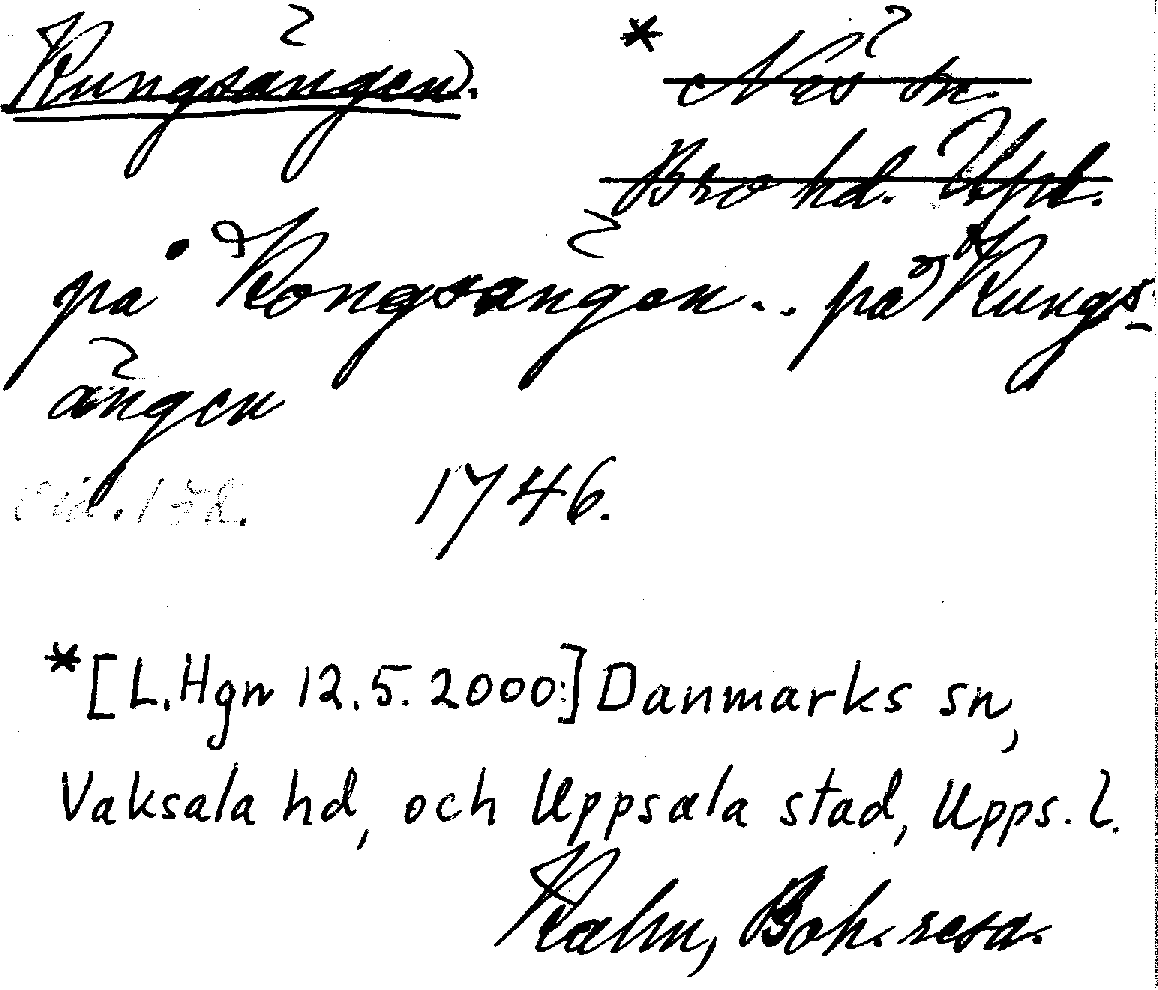 Kungsängen.
* Näs sn.
Bro hd. Upl.
på Kongsängen .. på Kungs-
ängen
1746.
*[L.Hgn 12.5.2000:] Danmarks sn,
Vaksala hd, och Uppsala stad, Upps. l.
Kalm, Boh. resa.